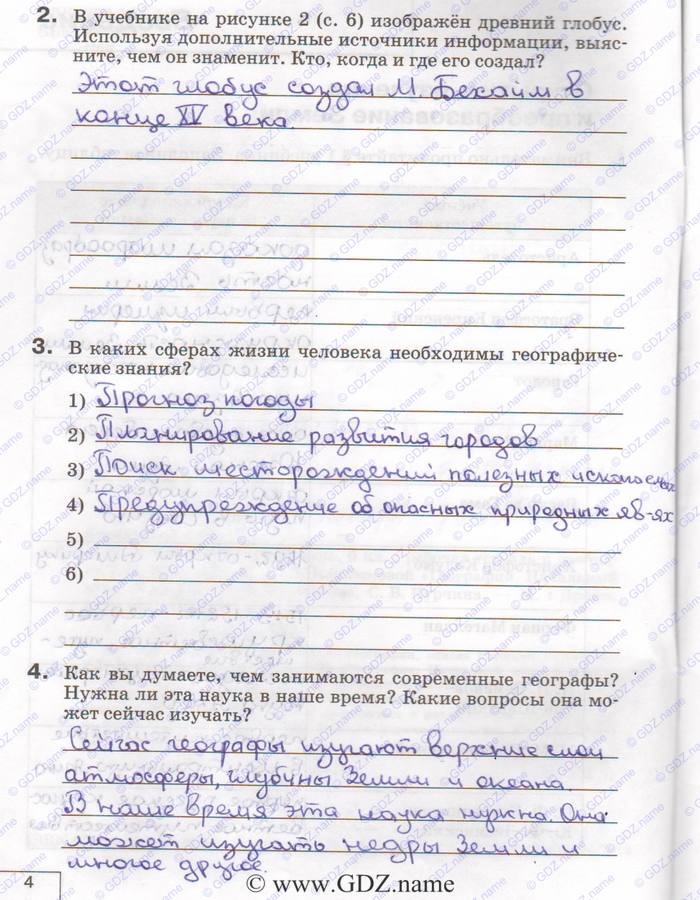 2. В учебнике на рисунке 2 (с. 6) изображён древний глобус.
Используя дополнительные источники информации, выяс-
ните, чем он знаменит. Кто, когда и где его создал?
Этот глобус создал М. Бехайм в
конце XV века.
3. В каких сферах жизни человека необходимы географиче-
ские знания?
1) Прогноз погоды
2) Планирование развития городов
3) Поиск месторождений полезных ископаемых
4) Предупреждение об опасных природных яв-ях
5)
6)
4. Как вы думаете, чем занимаются современные географы?
Нужна ли эта наука в наше время? Какие вопросы она мо-
жет сейчас изучать?
Сейчас географы изучают верхние слои
атмосферы, глубины Земли и океана.
В наше время эта наука нужна. Она
может изучать недры Земли и
многое другое.
4
© www.GDZ.name